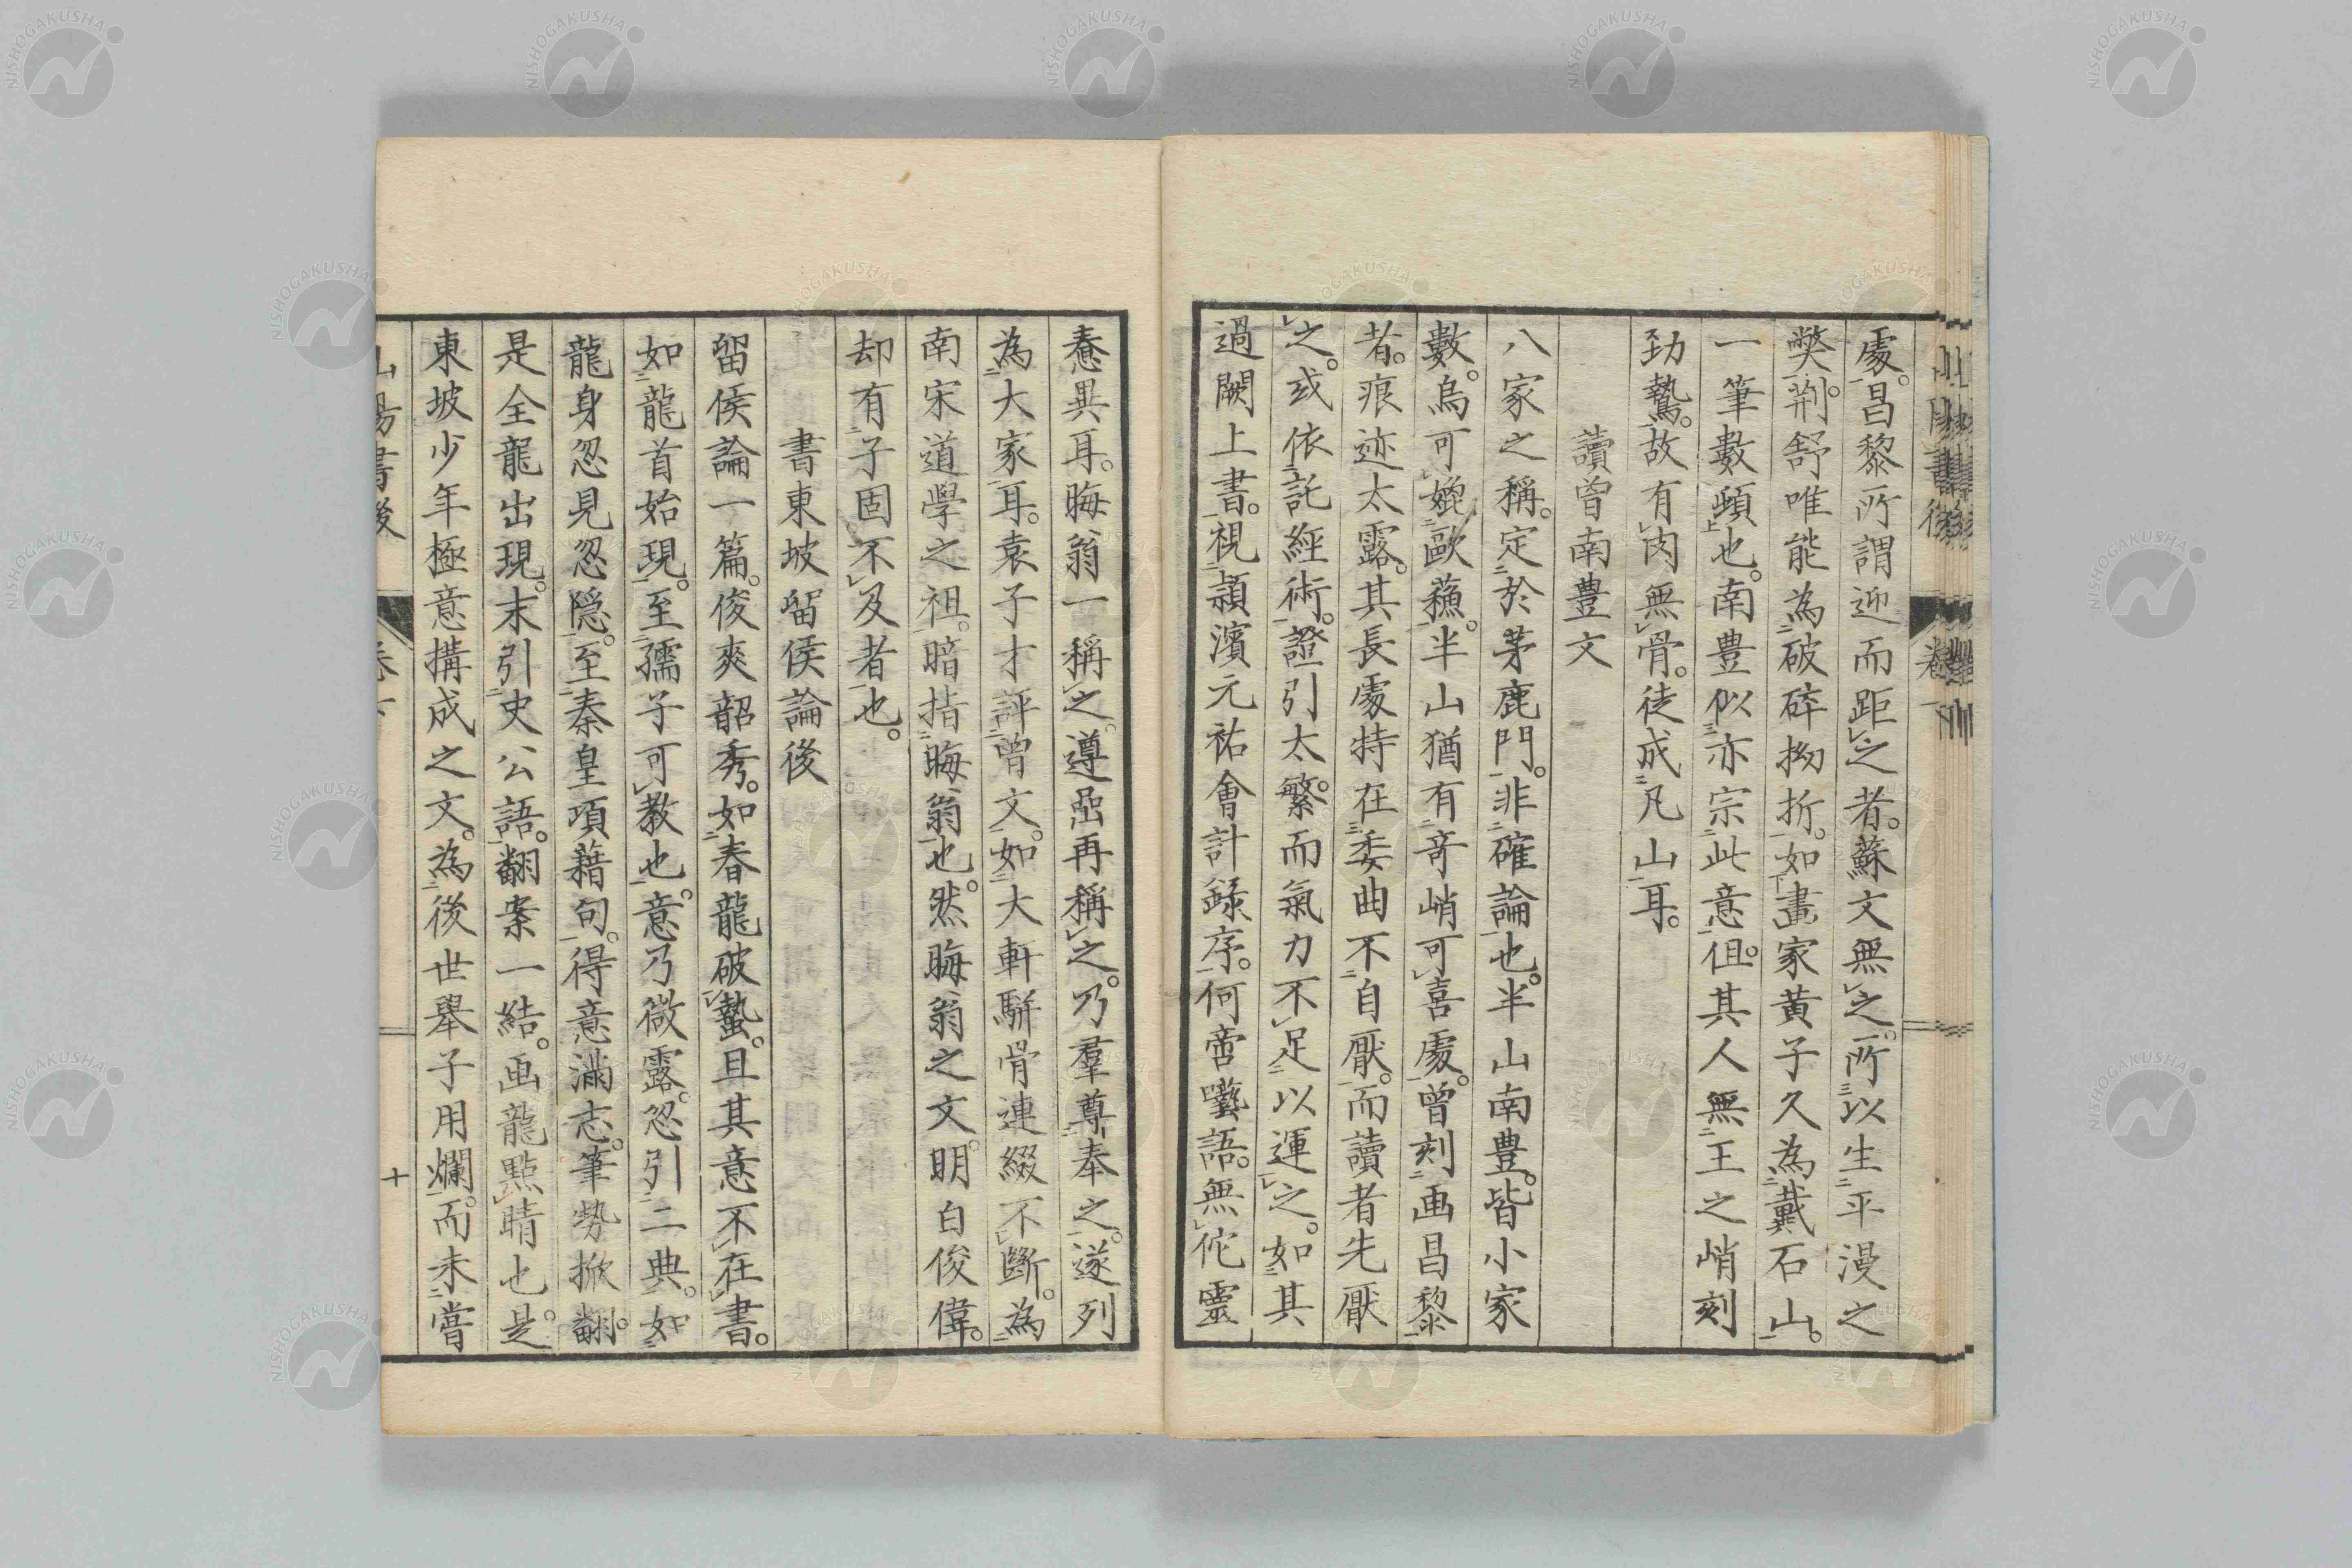 處。昌黎所謂迎而距之者。蘇文無之。所以生平漫之
獘。荆舒唯能為破碎拗折。如畫家黄子久為戴石山。
一筆數頓也。南豊似亦宗此意。但其人無王之峭刻
勁鷙。故有肉無骨。徒成凡山耳。
讀曾南豊文
八家之稱。定於茅鹿門。非確論也。半山南豊。皆小家
數。烏可娩歐蘓。半山猶有竒峭可喜處。曾刻画昌黎
者。痕迹太露。其長處特在委曲不自厭。而讀者先厭
之。或依託經術。證引太繁。而氣力不足以運之。如其
過闕上書。視潁濱元祐會計録序。何啻囈語。無佗靈
憃異耳。晦翁一稱之。遵嵒再稱之。乃羣尊奉之。遂列
為大家耳。袁子才評曾文。如大軒騈骨連綴不斷。為
南宋道學之祖。暗指晦翁也。然晦翁之文明白俊偉。
却有子固不及者也。
書東坡留侯論後
留侯論一篇。俊爽韶秀。如春龍破蟄。且其意不在書。
如龍首始現。至孺子可教也。意乃微露。忽引二典。如
龍身忽見忽隠。至秦皇項藉句。得意滿志。筆勢掀翻。
是全龍出現。末引史公語。翻案一結。画龍點晴也。是
東坡少年極意搆成之文。為後世舉子用爛。而未嘗
山陽書後
卷下
十
NISHOGAKUSHA